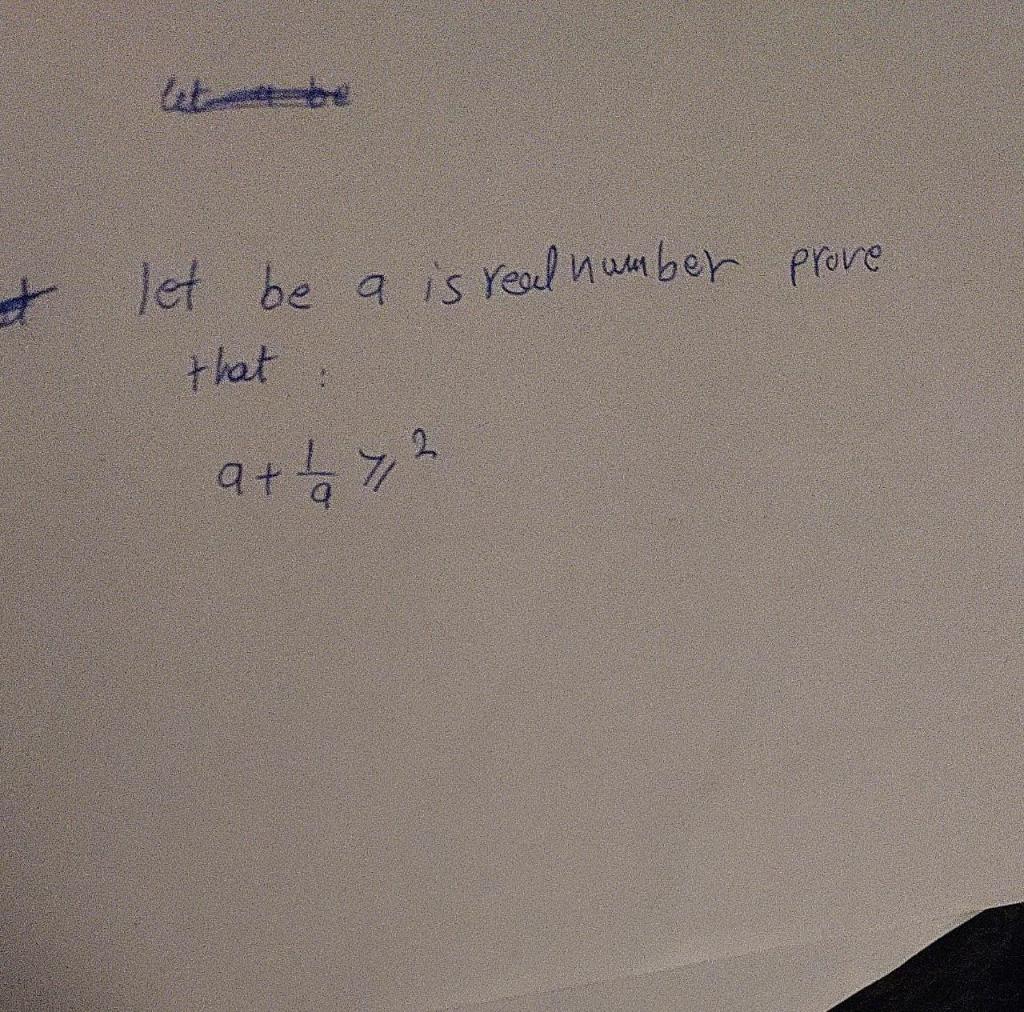 let be a is real number prove
that :
a + 1/a ⩾ 2